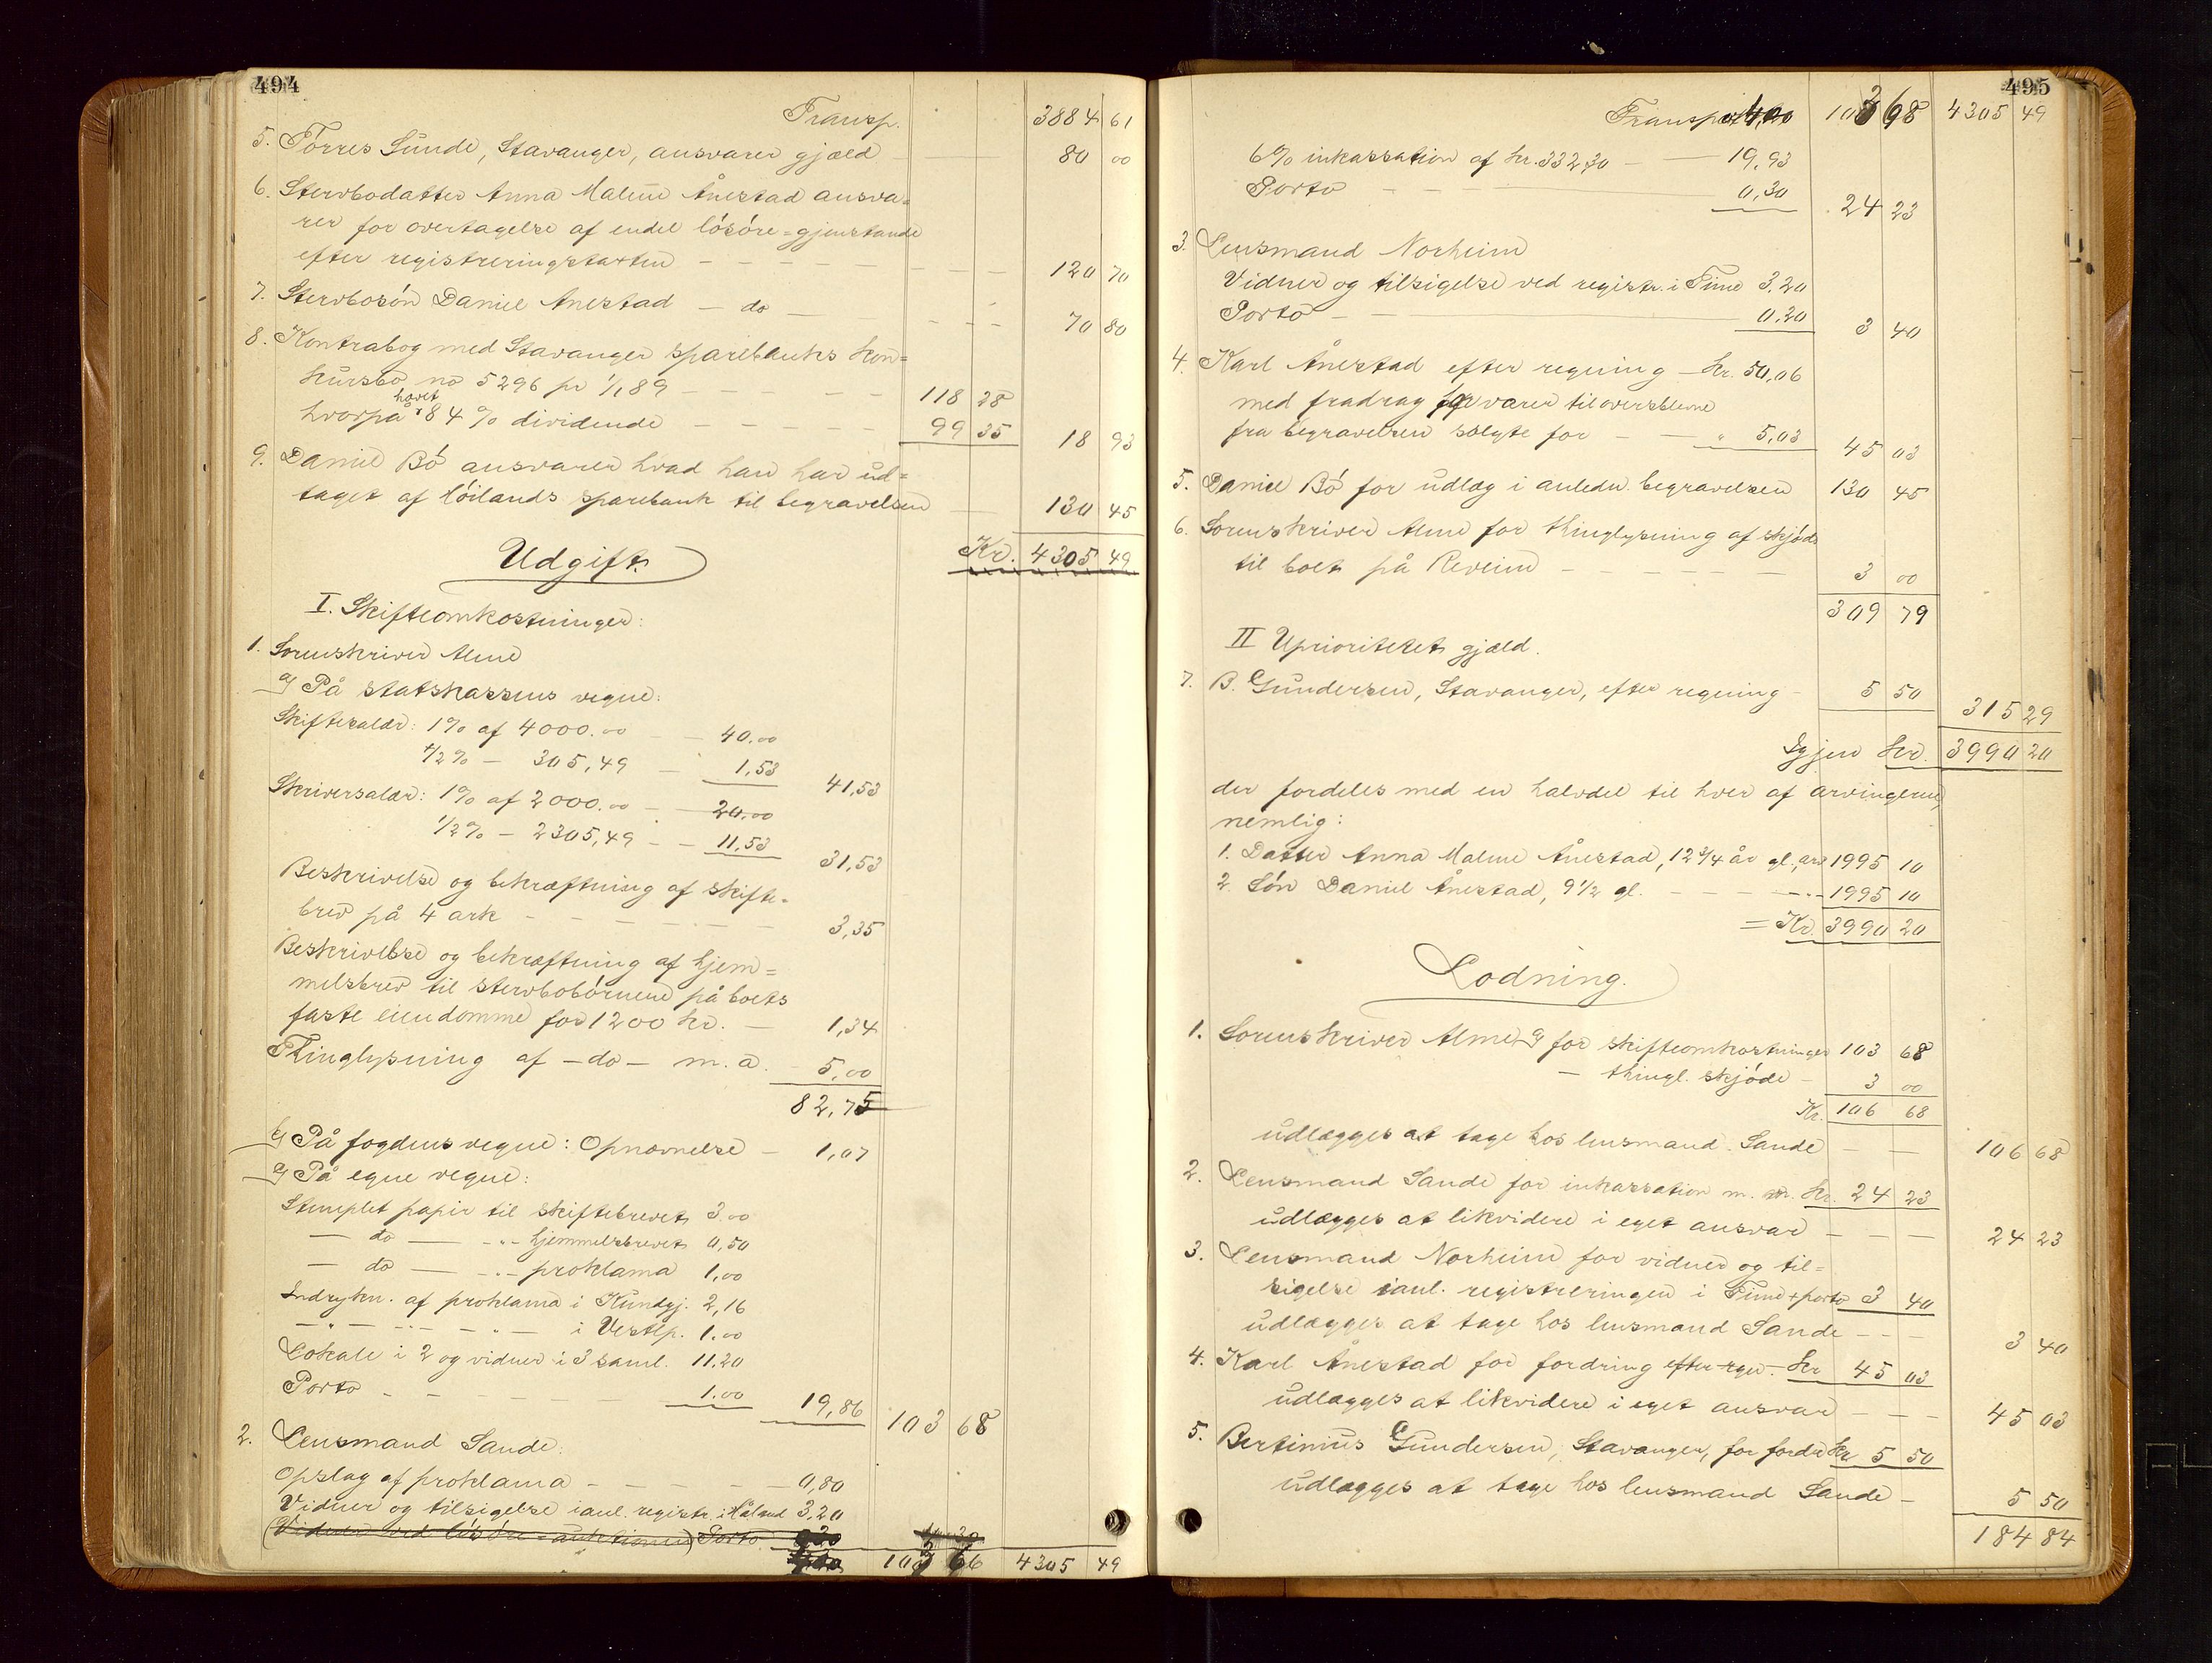 494
Transp. 3884 61
5. Torres Sunde, Stavanger, ansvarer gjæld 80 00
6. Stervbodatter Anna Maline Ånestad ansva=
rer for overtagelse af endel lósóre=gjenstande
efter registreringstaxten 120 70
7. Stervbosón Daniel Ånestad — do — 70 80
8. Kontrabog med Stavanger sparebanks kon=
kursbo no 5296 pr 1/1 89 118 28
hvorpå hævet 84 % dividende 99 35 18 93
9. Daniel Bó ansvarer hvad han har ud=
taget af Hóilands sparebank til begravelsen 130 45
Kr. 4305 49
Udgift.
I. Skifteomkostninger:
1. Sorenskriver Alme
a) På statskassens vegne:
Skiftesalær: 1% af 4000.00 — 40.00
1/2% — 305,49 — 1,53 41,53
Skriversalær: 1% af 2000.00 — 20.00
1/2% — 2305,49 — 11,53 31,53
Beskrivelse og bekræftning af skifte-
brev på 4 ark 3,35
Beskrivelse og bekræftning af hjem=
melsbrev til stervbobórnene på boets
faste eiendomme for 1200 kr. — 1,34
Thinglysning af — do — m. a. 5,00
82,75
b) På fogdens vegne: Opnævnelse — 1,07
c) På egne vegne:
Stemplet papir til skiftebrevet 3.00
— do — -"- hjemmelsbrevet 0,50
— do — -"- proklama 1,00
Indrykn. af proklama i Kundgj. 2,16
— " — " — " — i Vestlp. 1.00
Lokale i 2 og vidner i 3 saml. 11.20
Porto 1.00 19,86 103 68
2. Lensmand Sande:
Opslag af proklama 0,80
Vidner og tilsigelse i anl. registr. i Håland 3,20
(Vidner ved lósóre=auktionen) Porto
103 66 4305 49
495
Transport 103 68 4305 49
6% inkassation af kr. 332,30 — 19,93
Porto 0,30 24 23
3. Lensmand Norheim
Vidner og tilsigelse ved registr. i Time 3,20
Porto 0.20 3 40
4. Karl Ånestad efter regning — kr. 50,06
med fradrag for varer tiloversblevne
fra begravelsen solgte for — " 5,03 45 03
5. Daniel Bó for udlæg i anledn. begravelsen 130 45
6. Sorenskriver Alme for thinglysning af skjóde
til boet på Reveim 3 00
309 79
II Uprioriteret gjæld.
7. B. Gundersen, Stavanger, efter regning 5 50 315 29
Igjen kr. 3990 20
der fordeles med en halvdel til hver af arvingerne,
nemlig:
1. Datter Anna Maline Ånestad, 12 3/4 år gl., arv 1995 10
2. Són Daniel Ånestad, 9 1/2 gl. — 1995 10
= Kr. 3990 20
Lodning.
1. Sorenskriver Alme for skifteomkostninger 103 68
— thingl. skjóde 3 00
Kr. 106 68
udlægges at tage hos lensmand Sande 106 68
2. Lensmand Sande for inkassation m. m. kr. 24 23
udlægges at likvidere i eget ansvar 24 23
3. Lensmand Norheim for vidner og til=
sigelse i anl. registreringen i Time + porto 3 40
udlægges at tage hos lensmand Sande 3 40
4. Karl Ånestad for fordring efter regn. kr 45 03
udlægges at likvidere i eget ansvar 45 03
5. Bertinius Gundersen, Stavanger, for fordr. kr 5 50
udlægges at tage hos lensmand Sande 5 50
184 84